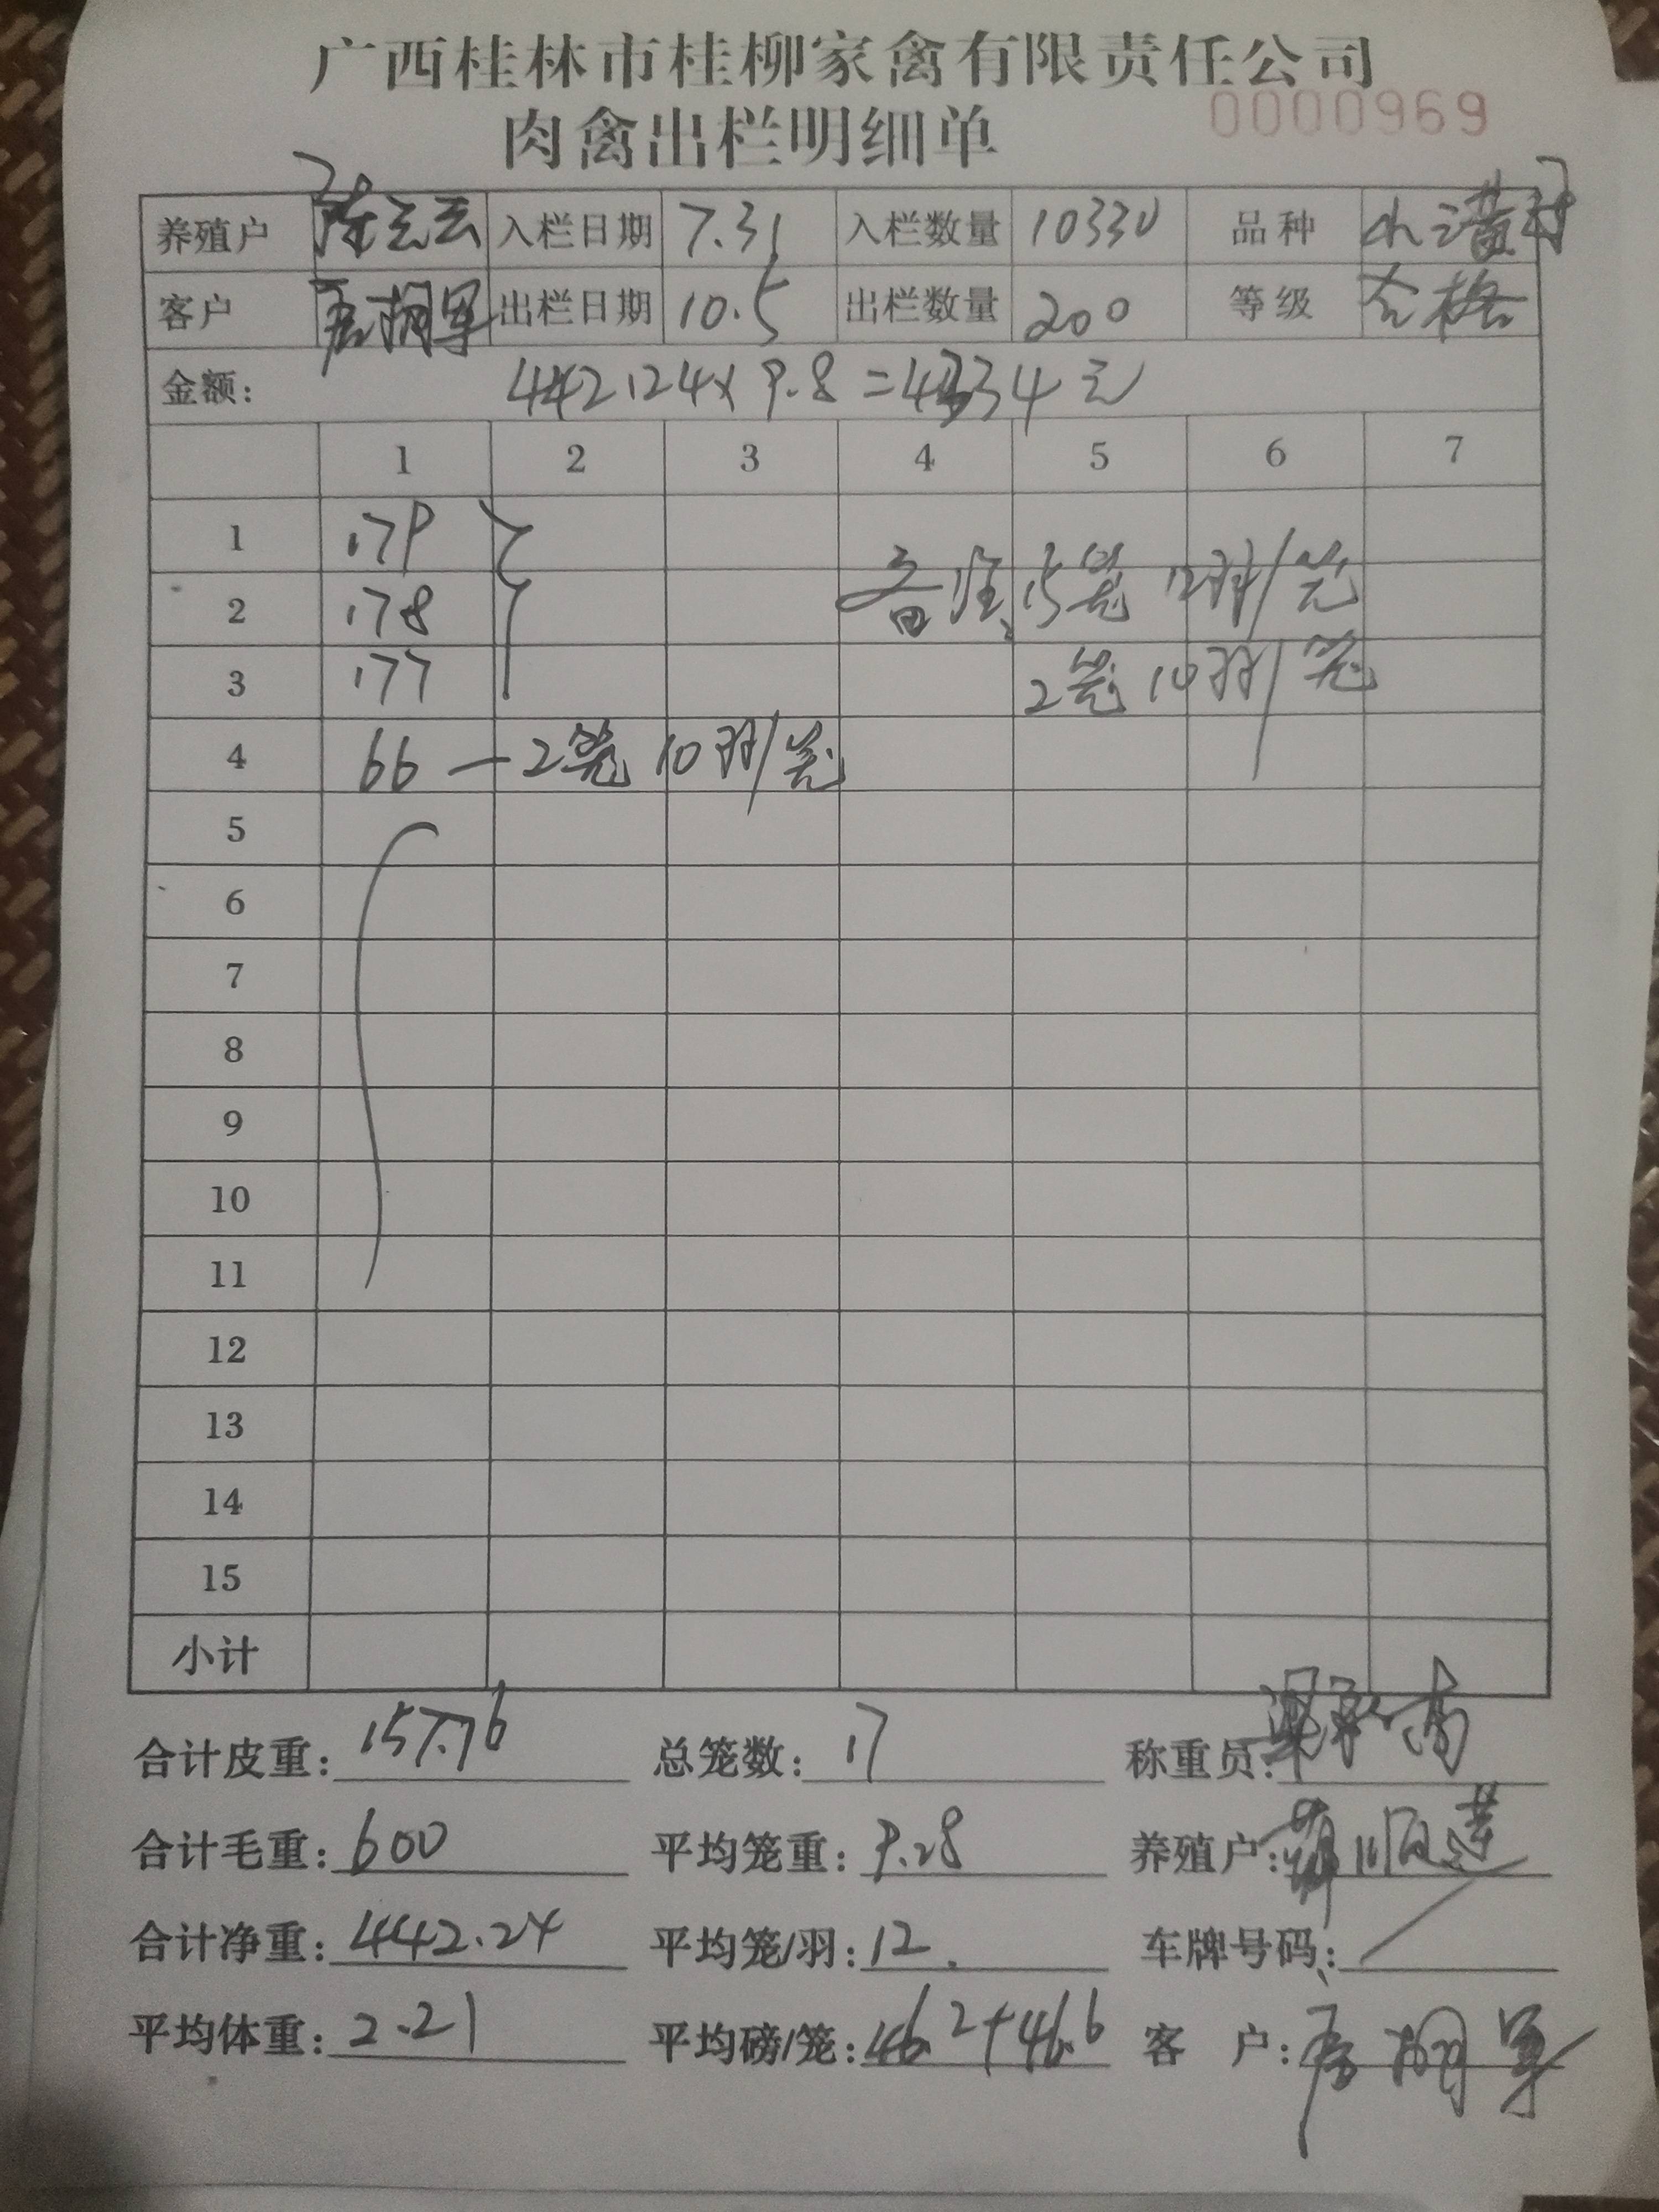 广西桂林市桂柳家禽有限责任公司
肉禽出栏明细单 0000969
养殖户 入栏日期 7.31 入栏数量 10330 品种
客户 出栏日期 10.5 出栏数量 200 等级 合格
金额: × 9.8 = 4334元
1 2 3 4 5 6 7
1 179
2 178 备注、15笼 12羽/笼
3 177 2笼 10羽/笼
4 66 — 2笼 10羽/笼
5
6
7
8
9
10
11
12
13
14
15
小计
合计皮重: 157.76 总笼数: 17 称重员:
合计毛重: 600 平均笼重: 9.28 养殖户:
合计净重: 442.24 平均笼/羽: 12. 车牌号码:
平均体重: 2.21 平均磅/笼: 46.2+46.6 客 户: